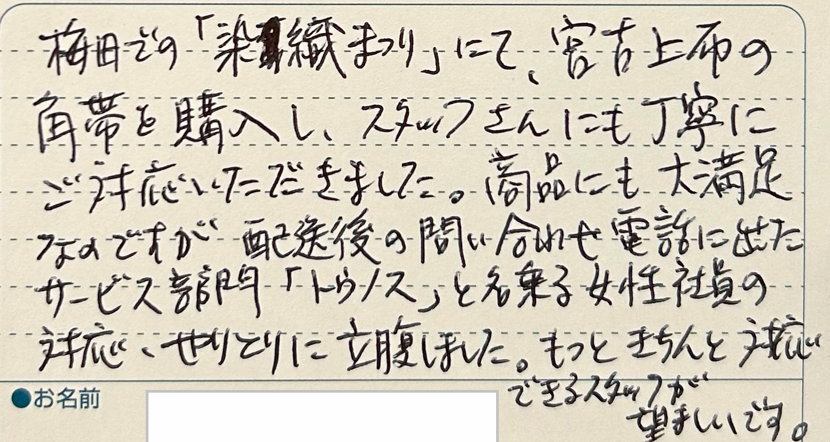 梅田での「染織まつり」にて、宮古上布の
角帯を購入し、スタッフさんにも丁寧に
ご対応いただきました。商品にも大満足
なのですが 配送後の問い合わせ電話に出た
サービス部門「トウノス」と名乗る女性社員の
対応、やりとりに立腹しました。もっときちんと対応
できるスタッフが
望ましいです。
●お名前